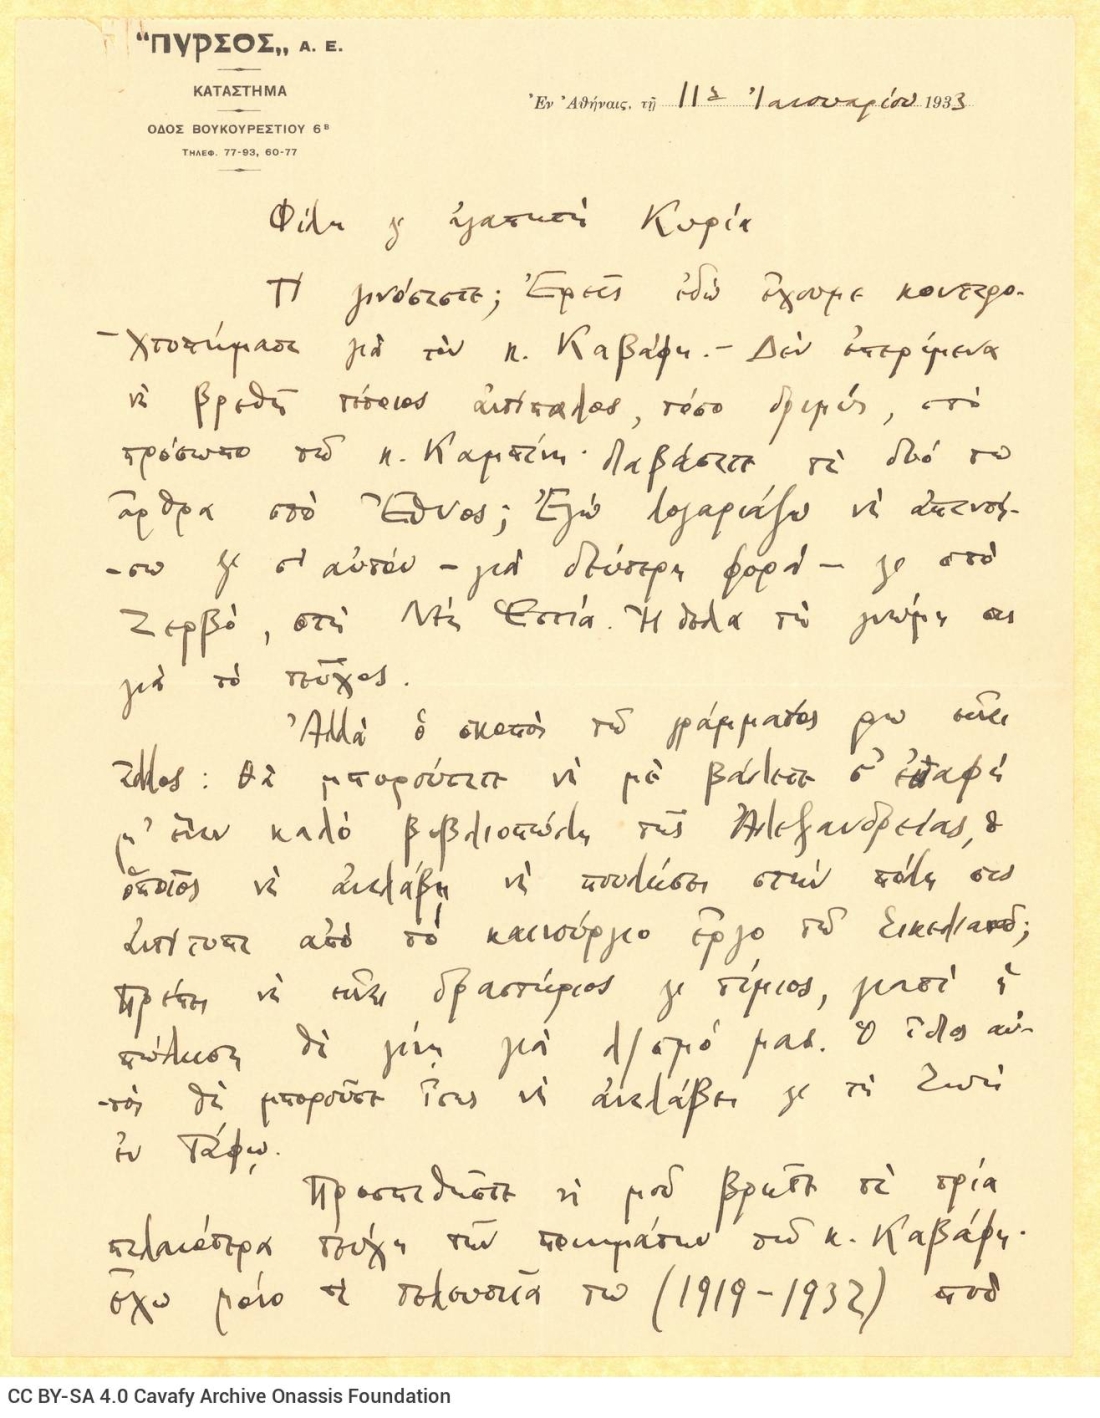 "ΠΥΡΣΟΣ„ Α. Ε.
ΚΑΤΑΣΤΗΜΑ
ΟΔΟΣ ΒΟΥΚΟΥΡΕΣΤΙΟΥ 6ᴮ
ΤΗΛΕΦ. 77-93, 60-77
Ἐν Ἀθήναις, τῇ 11ῃ Ἰανουαρίου 1933
Φίλη κι ἀγαπητὴ Κυρία
Τί γινόσαστε; Ἐμεῖς ἐδῶ ἔχουμε κονταρο-
-χτυπήματα γιὰ τὸν κ. Καβάφη. – Δὲν ἐπερίμενα
νὰ βρεθῆ τέτοιος ἀντίπαλος, τόσο δριμύς, στὸ
πρόσωπο τοῦ κ. Καμπάνη· διαβάσατε τὰ δυό του
ἄρθρα στὸ Ἔθνος; Ἐγὼ λογαριάζω νὰ ἀπαντή-
-σω κι σ' αὐτόν – γιὰ δεύτερη φορά – κι στὸ
Ζερβό, στὴ Νέα Ἑστία. Ἤθελα τὴ γνώμη σας
γιὰ τὸ τεῦχος.
Ἀλλὰ ὁ σκοπὸς τοῦ γράμματός μου εἶναι
ἄλλος: θὰ μπορούσατε νὰ μὲ βάλετε σ' ἐπαφὴ
μ' ἕναν καλὸ βιβλιοπώλη τῆς Ἀλεξανδρείας, ὁ
ὁποῖος νὰ ἀναλάβη νὰ πουλήσει στὴν πόλη σας
ἀντίτυπα ἀπὸ τὸ καινούργιο ἔργο τοῦ Σικελιανοῦ;
Πρέπει νὰ εἶναι δραστήριος κι τίμιος, γιατὶ ἡ
πώληση θὰ γίνη γιὰ λ/σμό μας. Ὁ ἴδιος αὐ-
-τὸς θὰ μποροῦσε ἴσως νὰ ἀναλάβει κι τὴ Ζωὴ
ἐν Τάφῳ.
Προσπαθῆστε νὰ μοῦ βρῆτε τὰ τρία
παλαιότερα τεύχη τῶν ποιημάτων τοῦ κ. Καβάφη·
ἔχω μόνο τὰ τελευταῖα του (1919-1932) ποὺ
CC BY-SA 4.0 Cavafy Archive Onassis Foundation